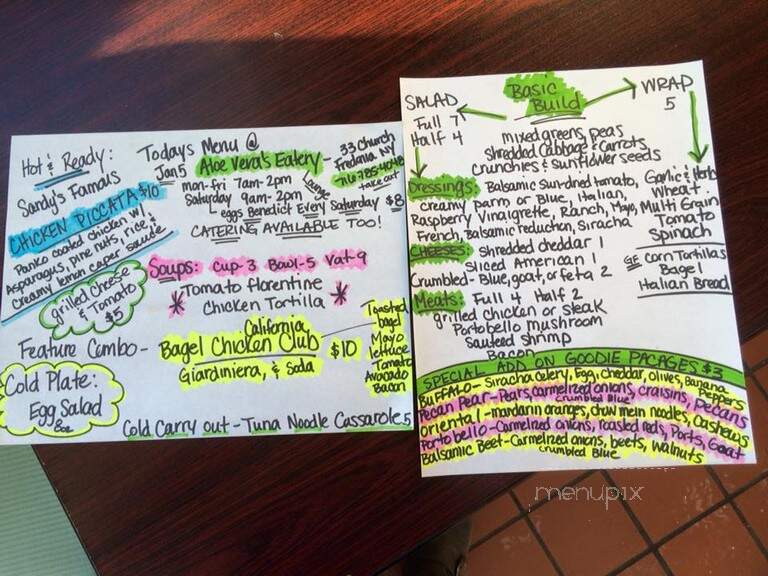 Hot & Ready:
Sandy's Famous
CHICKEN PICCATA $10
Panko coated chicken w/
Asparagus, pine nuts, rice &
creamy lemon caper sauce
grilled Cheese
& Tomato
$5
Todays Menu @
Jan 5
Aloe Vera's Eatery -
33 Church
Fredonia NY
716 785-4048
take out
mon-fri 7am-2pm
Saturday 9am-2pm
Lounge
eggs Benedict Every Saturday $8
CATERING AVAILABLE TOO!
Soups: Cup-3 Bowl-5 Vat-9
Tomato florentine
Chicken Tortilla
Feature Combo -
California
Bagel Chicken Club
Giardiniera, & Soda
$10
Toasted
bagel
Mayo
lettuce
Tomato
Avocado
Bacon
Cold Plate:
Egg Salad
8oz
Cold Carry out - Tuna Noodle Casserole 5
SALAD
Full 7
Half 4
Basic
Build
WRAP
5
mixed greens, peas
Shredded Cabbage & Carrots
Crunchies & sunflower seeds
Dressings: Balsamic sun-dried tomato,
creamy parm or Blue, Italian,
Raspberry Vinaigrette, Ranch, Mayo,
French, Balsamic reduction, Siracha
Garlic & Herb
Wheat
Multi Grain
Tomato
Spinach
GF corn Tortillas
Bagel
Italian Bread
CHEESES: Shredded cheddar 1
Sliced American 1
Crumbled- Blue, goat, or feta 2
Meats: Full 4 Half 2
grilled chicken or steak
Portobello mushroom
Sauteed shrimp
Bacon
SPECIAL ADD ON GOODIE PACAGES $3
BUFFALO- Siracha celery, Egg, cheddar, olives, Banana Peppers
Pecan Pear- Pears, carmelized onions, craisins, pecans
crumbled Blue
Oriental- mandarin oranges, chow mein noodles, Cashews
Portobello- Carmelized onions, roasted reds, Ports, Goat
Balsamic Beef- Carmelized onions, beets, walnuts
crumbled Blue
menupix